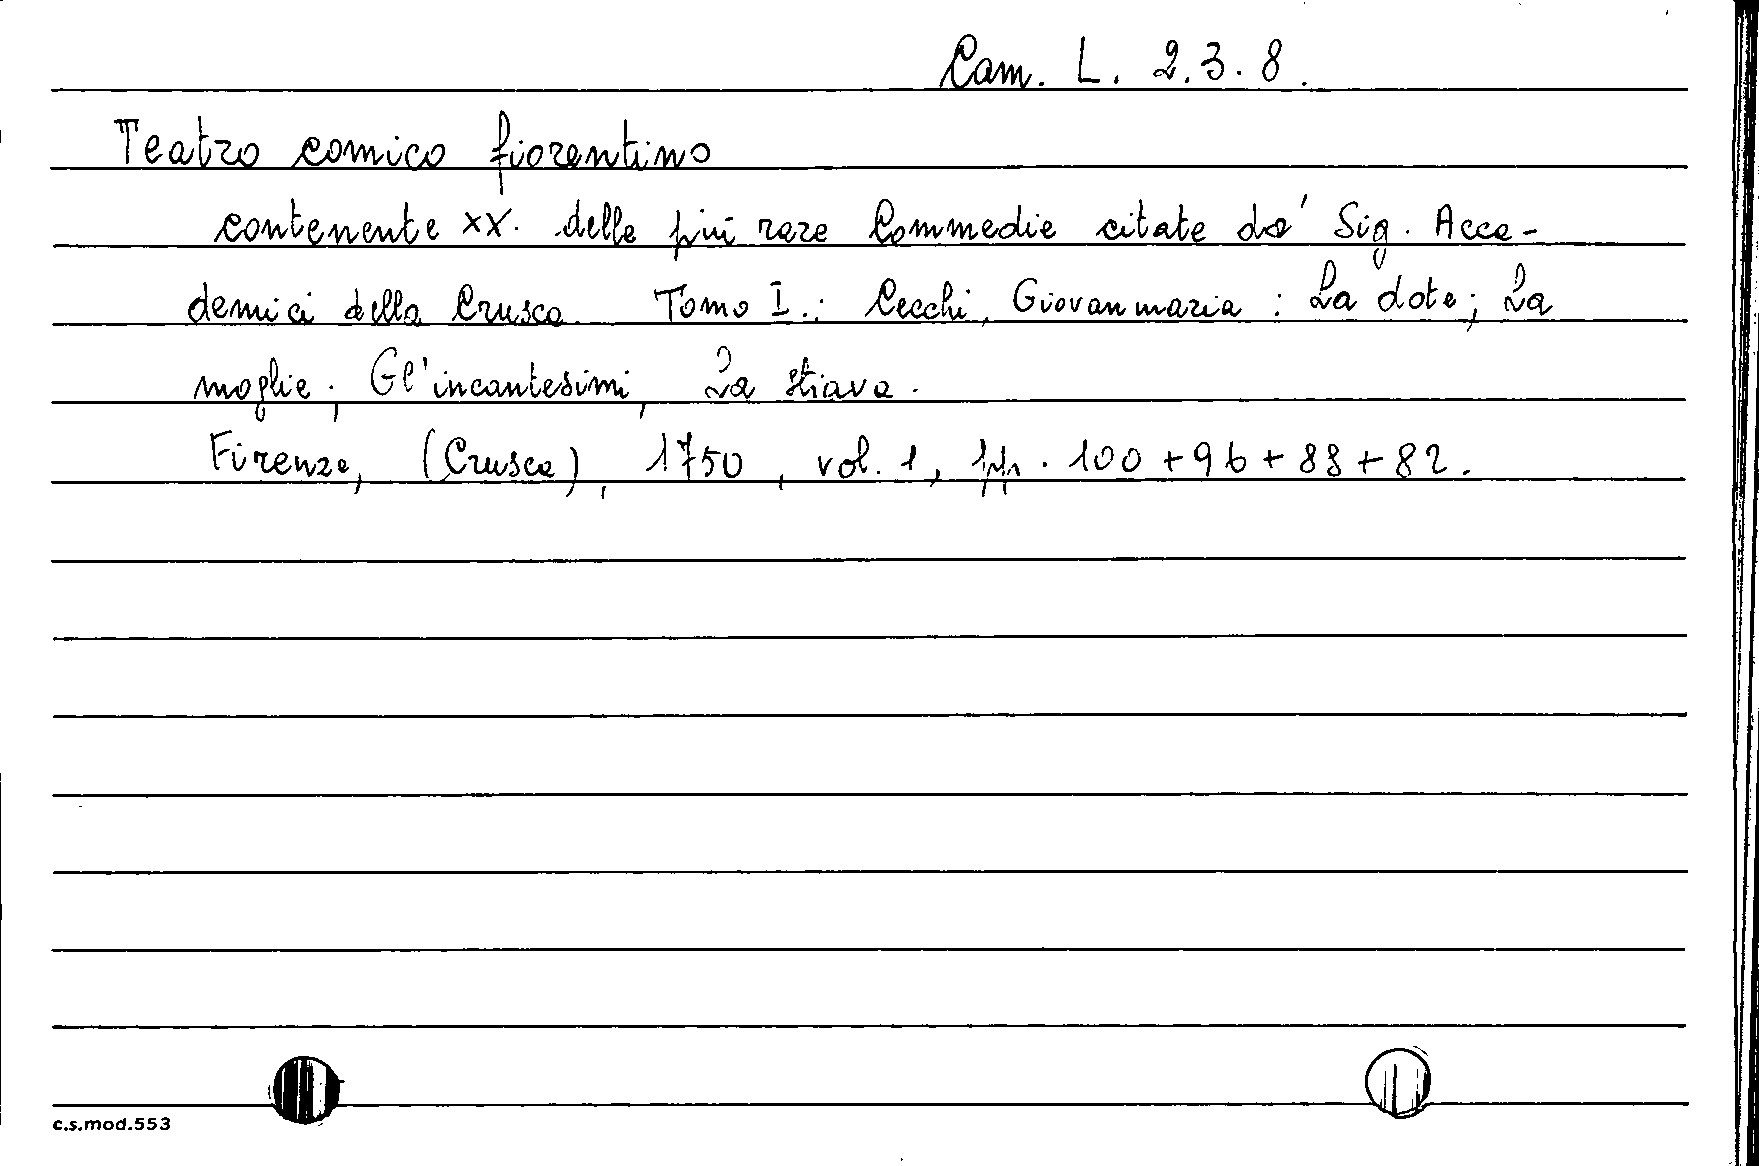 Cam. L. 2.3.8.
Teatro comico fiorentino
contenente XX. delle più rare Commedie citate da' Sig. Acca-
demici della Crusca. Tomo I.: Cecchi, Giovanmaria: La dote; La
moglie; Gl'incantesimi, La stiava.
Firenze, (Crusca), 1750, vol. 1, pp. 100+96+88+82.
c.s.mod.553